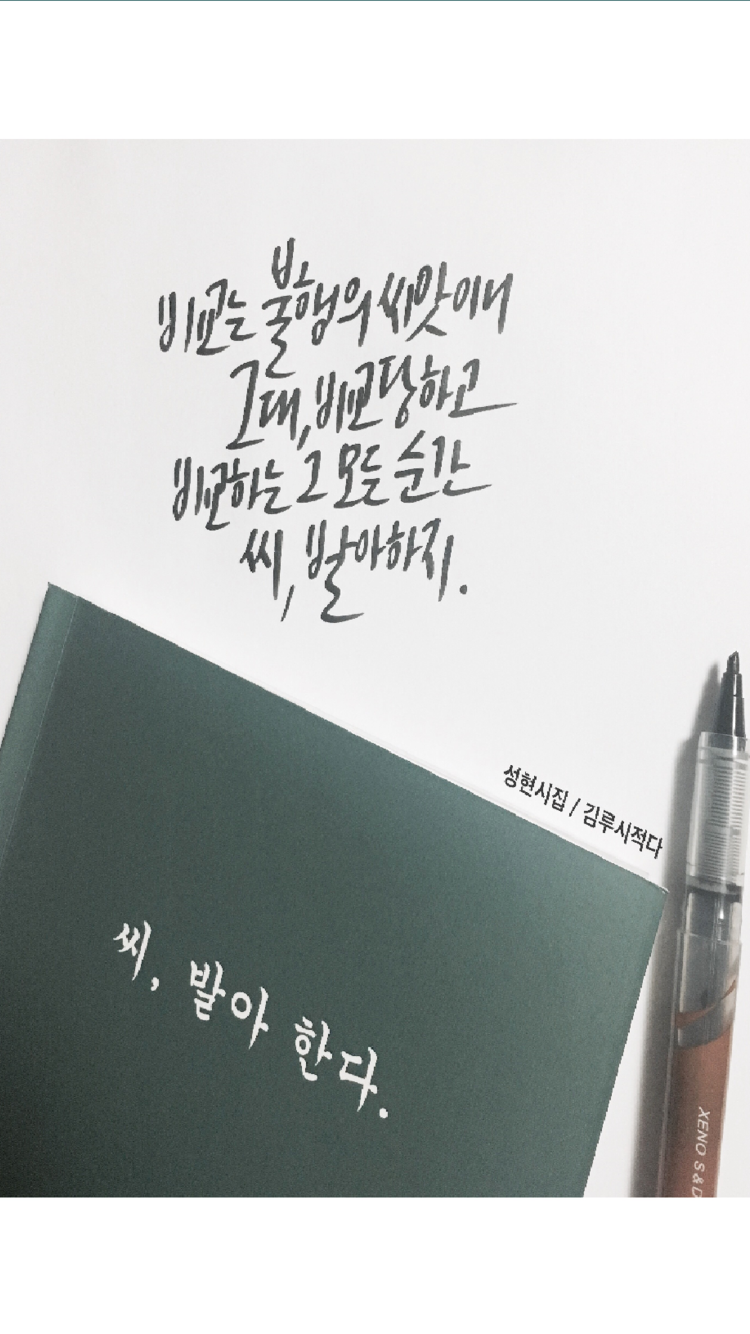 비교는 불행의 씨앗이니
그대, 비교당하고
비교하는 그 모든 순간
씨, 발아하지.
성현시집 / 김루시적다
씨, 발아 한다.
XENO S & D